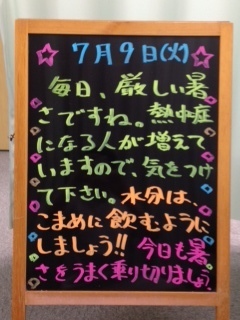 7月9日(火)
毎日、厳しい暑
さですね。熱中症
になる人が増えて
いますので、気をつけ
て下さい。水分は、
こまめに飲むように
しましょう!!今日も暑
さをうまく乗り切りましょう